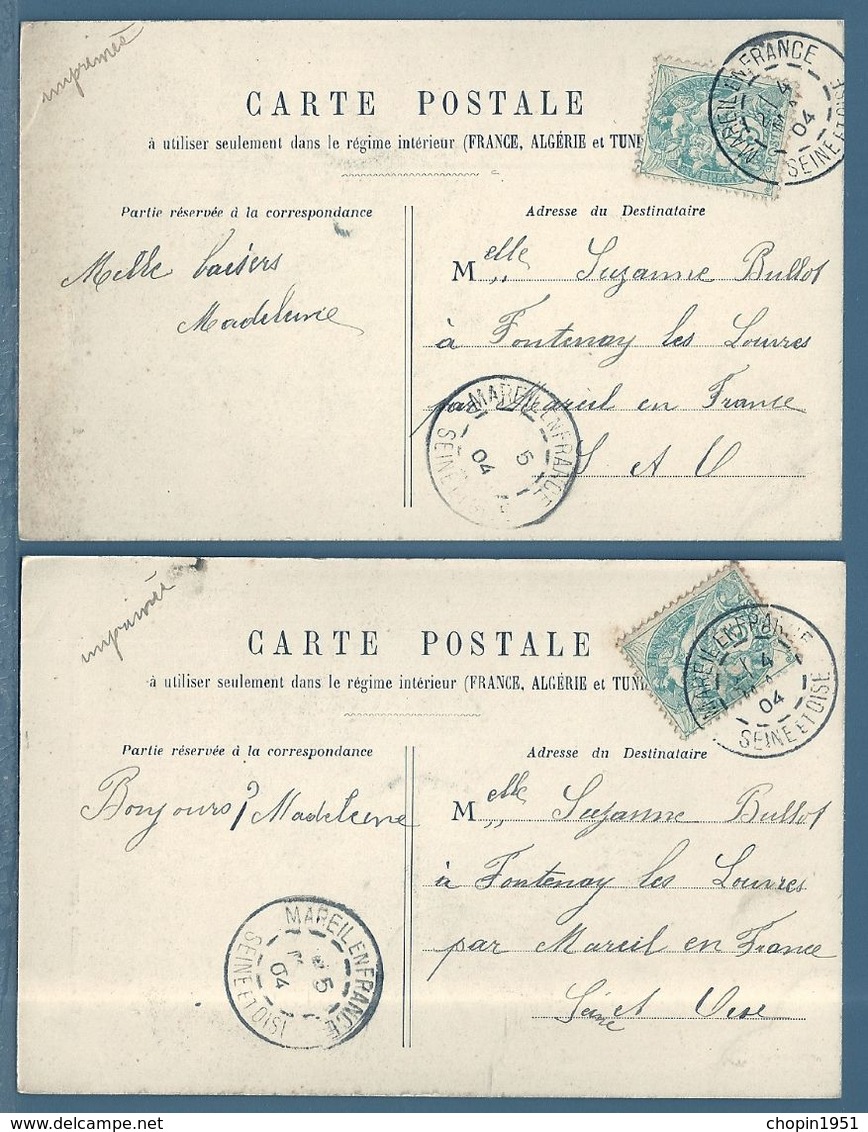 imprimée
CARTE POSTALE
à utiliser seulement dans le régime intérieur (FRANCE, ALGÉRIE et TUNI
MAREIL EN FRANCE
4
04
SEINE ET OISE
Partie réservée à la correspondance
Adresse du Destinataire
Mille baisers
Madeleine
Melle Suzanne Bullot
à Fontenay les Louvres
par Mareil en France
S et O
MAREIL EN FRANCE
5
04
SEINE
imprimée
CARTE POSTALE
à utiliser seulement dans le régime intérieur (FRANCE, ALGÉRIE et TUNI
MAREIL EN FRANCE
4
04
SEINE ET OISE
Partie réservée à la correspondance
Adresse du Destinataire
Bonjours Madeleine
Melle Suzanne Bullot
à Fontenay les Louvres
par Mareil en France
Seine et Oise
MAREIL EN FRANCE
5
04
SEINE ET OISE
www.delcampe.net
chopin1951